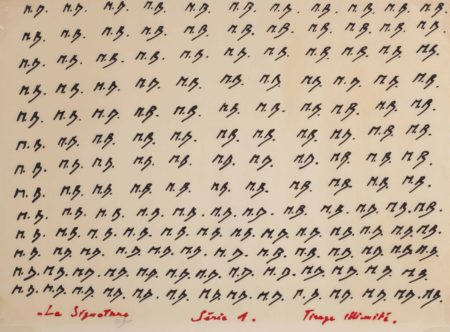 M.B. M.B. M.B. M.B. M.B. M.B. M.B. M.B. M.B. M.B. M.B. M.B.
M.B. M.B. M.B. M.B. M.B. M.B. M.B. M.B. M.B. M.B. M.B. M.B.
M.B. M.B. M.B. M.B. M.B. M.B. M.B. M.B. M.B. M.B. M.B.
M.B. M.B. M.B. M.B. M.B. M.B. M.B. M.B. M.B. M.B. M.B. M.B.
M.B. M.B. M.B. M.B. M.B. M.B. M.B. M.B. M.B. M.B. M.B. M.B.
M.B. M.B. M.B. M.B. M.B. M.B. M.B. M.B. M.B. M.B. M.B. M.B.
M.B. M.B. M.B. M.B. M.B. M.B. M.B. M.B. M.B. M.B. M.B. M.B.
M.B. M.B. M.B. M.B. M.B. M.B. M.B. M.B. M.B. M.B. M.B. M.B.
M.B. M.B. M.B. M.B. M.B. M.B. M.B. M.B. M.B. M.B. M.B. M.B. M.B. M.B.
M.B. M.B. M.B. M.B. M.B. M.B. M.B. M.B. M.B. M.B. M.B. M.B. M.B. M.B.
M.B. M.B. M.B. M.B. M.B. M.B. M.B. M.B. M.B. M.B. M.B. M.B. M.B. M.B.
M.B. M.B. M.B. M.B. M.B. M.B. M.B. M.B. M.B. M.B. M.B. M.B. M.B. M.B. M.B.
M.B. M.B. M.B. M.B. M.B. M.B. M.B. M.B. M.B. M.B. M.B. M.B. M.B. M.B. M.B.
La Signature Série 1. Tirage illimité.